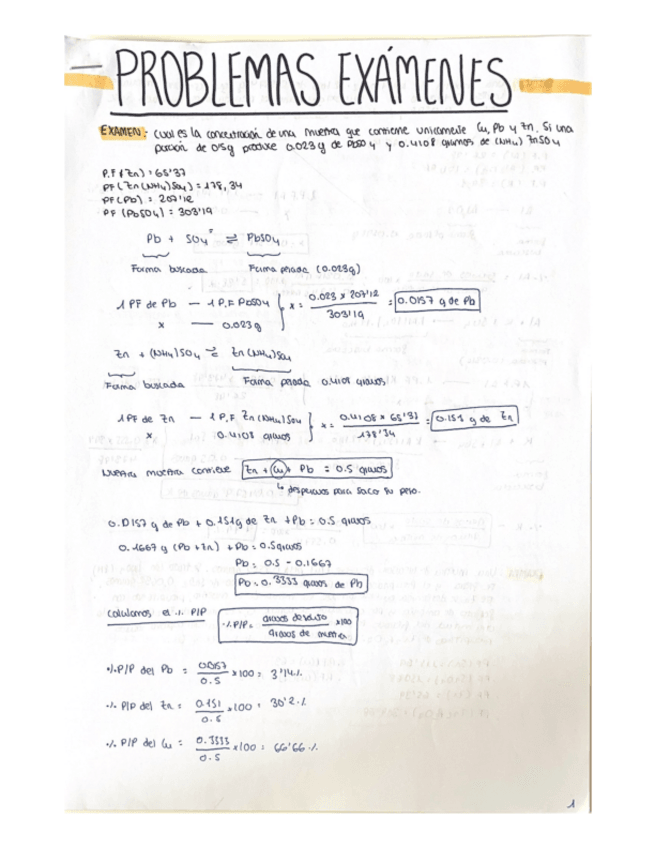 PROBLEMAS EXÁMENES
EXAMEN: Cual es la concentración de una muestra que contiene unicamente Cu, Pb y Zn. Si una
porción de 0'5g produce 0.023g de PbSO4 y 0.4108 gramos de (NH4) ZnSO4
P.F (Zn) : 65'37
PF (Zn(NH4)SO4) = 178,34
PF (Pb) : 207'12
PF (PbSO4) : 303'19
Pb + SO4= ⇌ PbSO4
Forma buscada Forma pesada (0.023g)
1 PF de Pb — 1 P.F PbSO4 } x = 0.023 x 207'12 / 303'19 = 0.0157 g de Pb
x — 0.023g
Zn + (NH4)SO4 ⇌ Zn(NH4)SO4
Forma buscada Forma pesada 0.4108 gramos
1 PF de Zn — 1 P.F Zn(NH4)SO4 } x = 0.4108 x 65'37 / 178'34 = 0.151 g de Zn
x 0.4108 gramos
Nuestra muestra contiene Zn + Cu + Pb = 0.5 gramos
↳ despejamos para sacar su peso.
0.0157 g de Pb + 0.151g de Zn + Pb = 0.5 gramos
0.1667 g (Pb + Zn) + Pb = 0.5gramos
Pb = 0.5 - 0.1667
Pb = 0.3333 gramos de Pb
Calculamos el % P/P %P/P = gramos de soluto / gramos de muestra x100
% P/P del Pb = 0.0157 / 0.5 x100 = 3'14%
% P/P del Zn = 0.151 / 0.5 x100 = 30'2%
% P/P del Cu = 0.3333 / 0.5 x100 = 66'66%
1